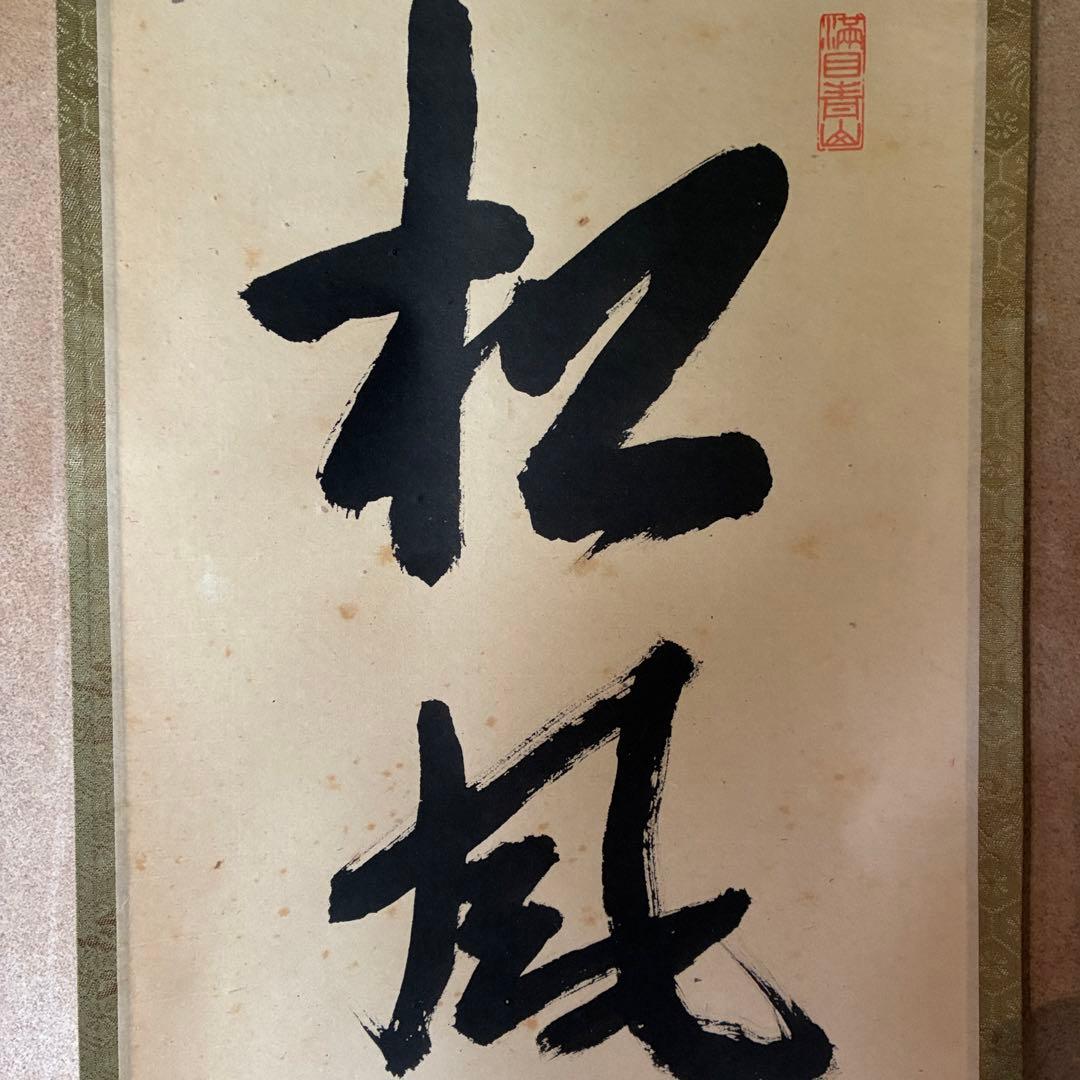 滿目青山
松
風